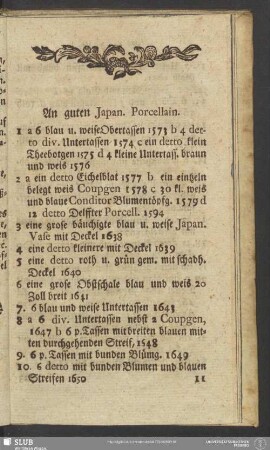 An guten Japan. Porcellain.
1 a 6 blau u. weise Obertassen 1573 b 4 det-
to div. Untertassen 1574 c ein detto klein
Theebotgen 1575 d 4 kleine Untertass. braun
und weis 1576
2 a ein detto Eichelblat 1577 b ein eintzeln
belegt weis Coupgen 1578 c 30 kl. weis
und blaue Conditor Blumentöpfg. 1579 d
12 detto Delffter Porcell. 1594
3 eine grose bäuchigte blau u. weise Japan.
Vase mit Deckel 1638
4 eine detto kleinere mit Deckel 1639
5 eine detto roth u. grün gem. mit schadh.
Deckel 1640
6 eine grose Obstschale blau und weis 20
Zoll breit 1641
7. 6 blau und weise Untertassen 1643
8 a 6 div. Untertassen nebst 2 Coupgen,
1647 b 6 p. Tassen mit breiten blauen mit-
ten durchgehenden Streif, 1548
9. 6 p. Tassen mit bunden Blümg. 1649
10. 6 detto mit bunden Blumen und blauen
Streifen 1650 11
SLUB